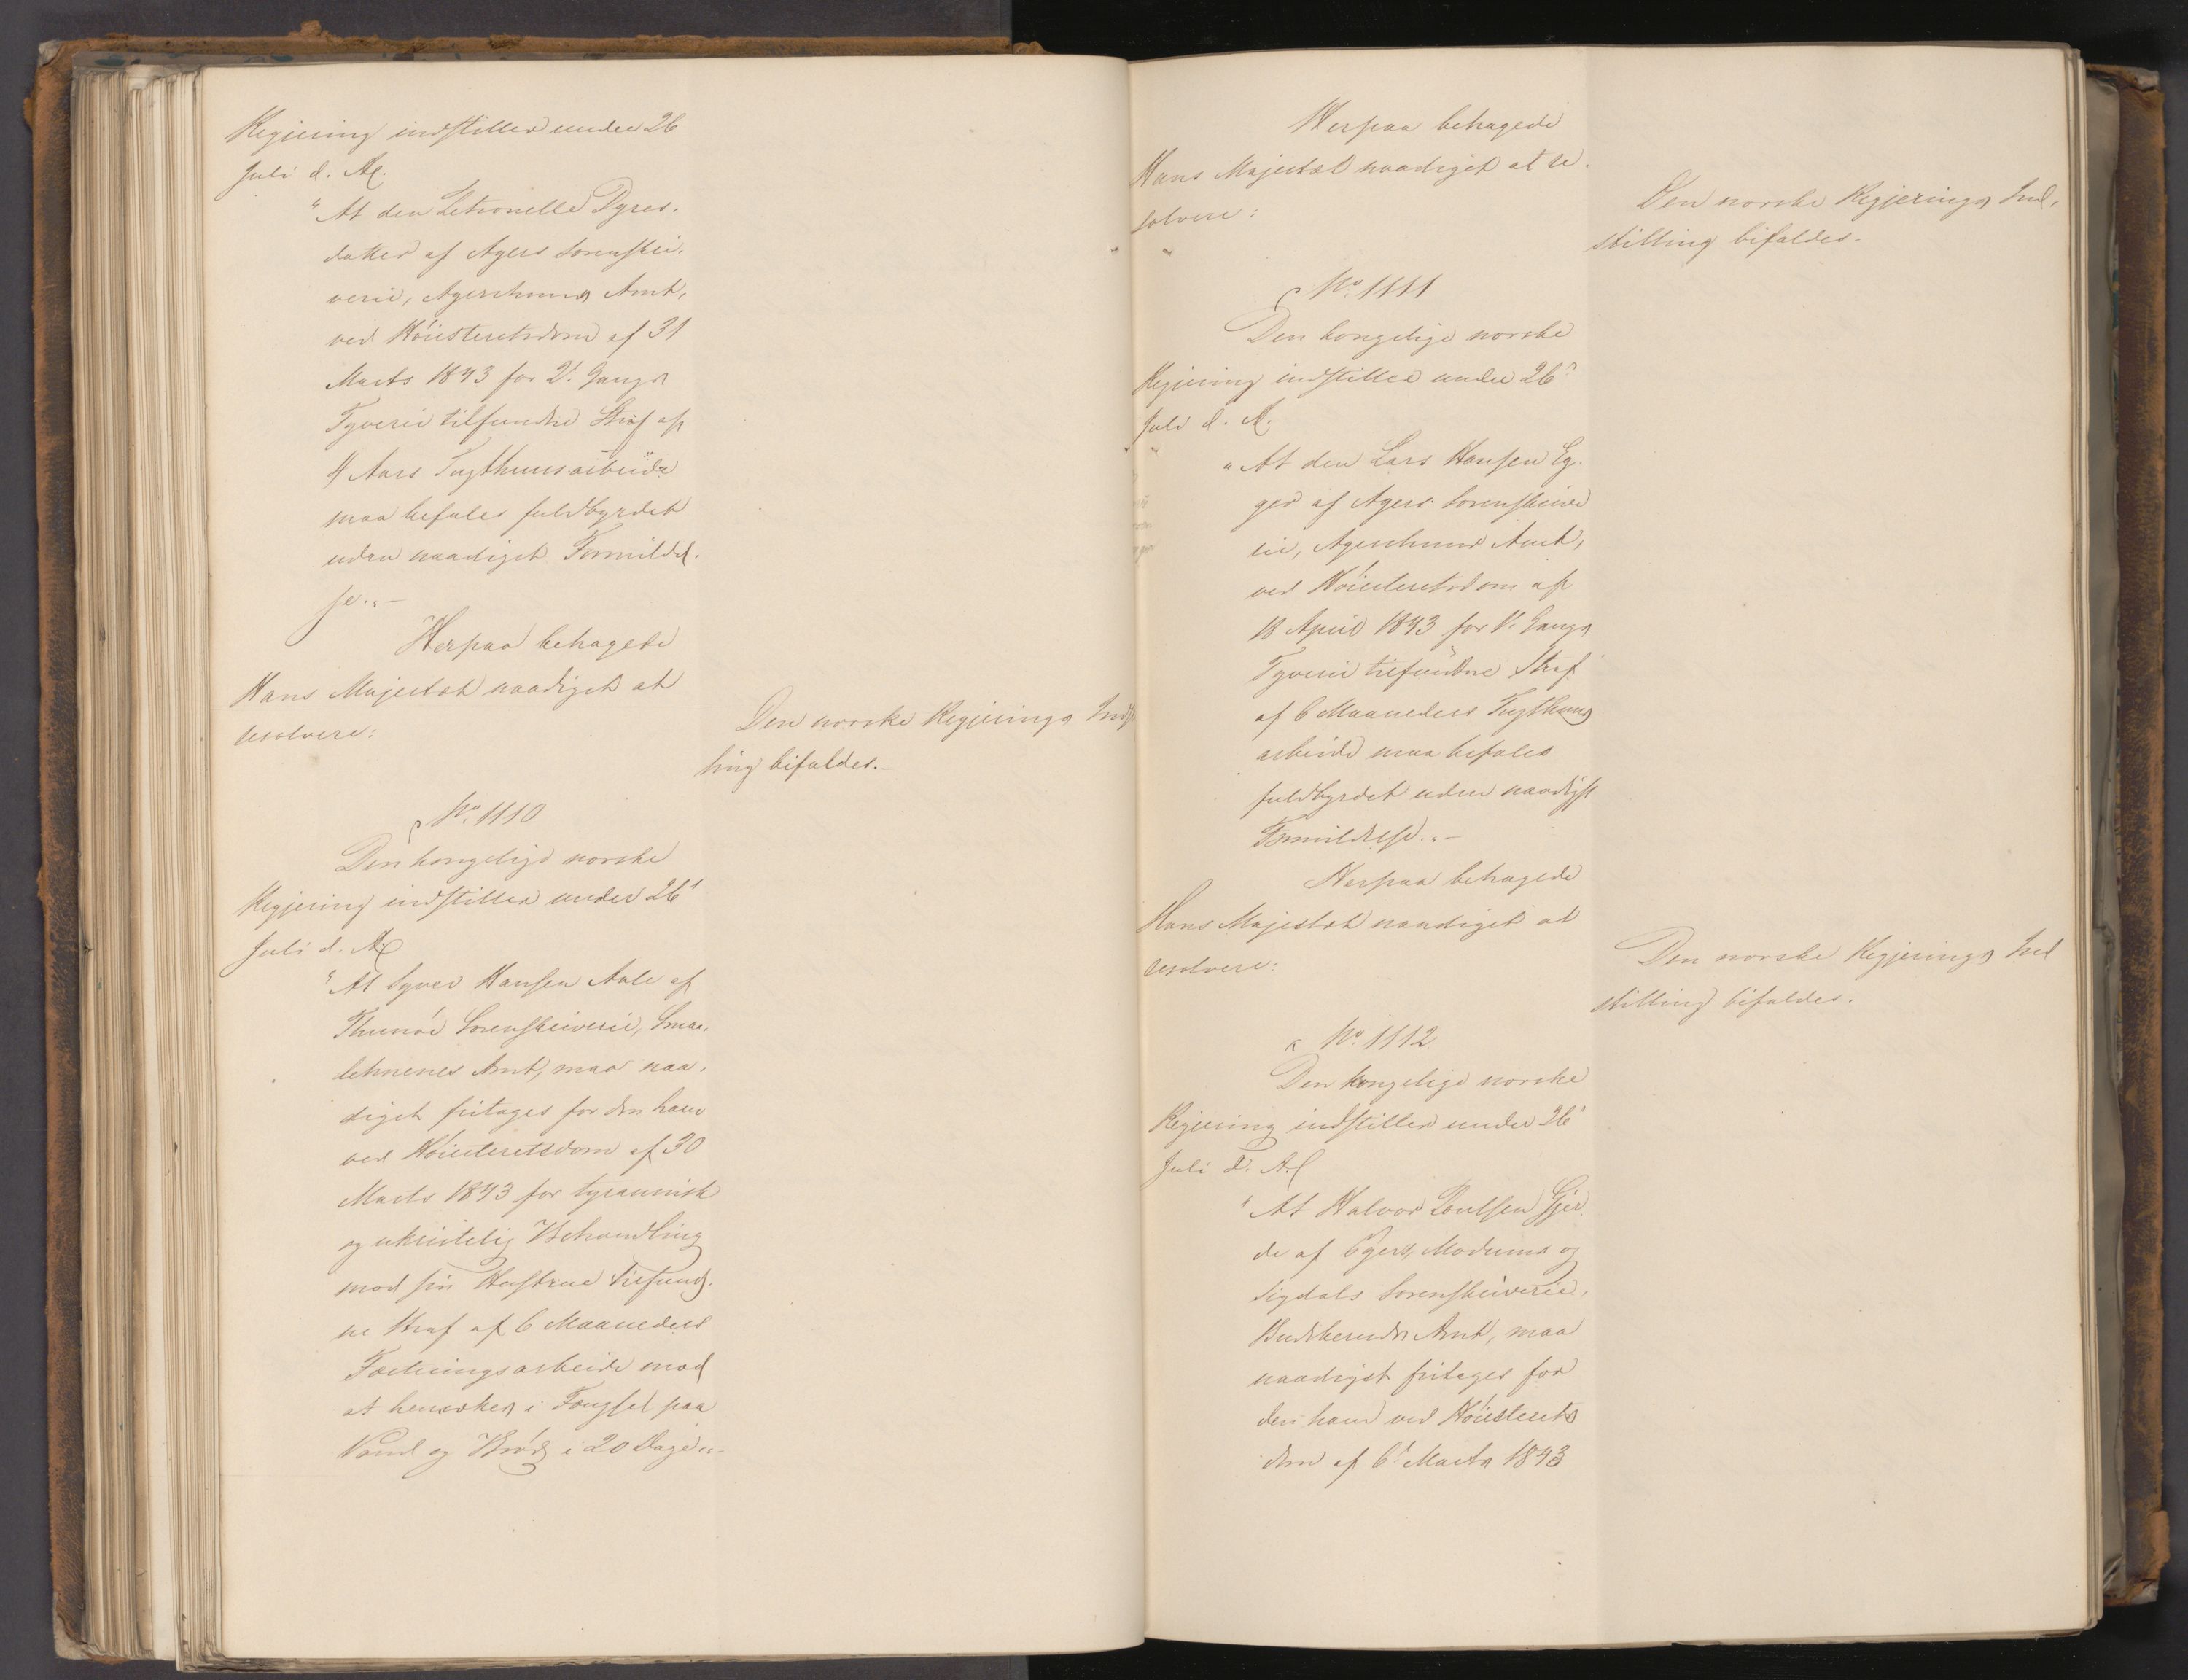 Regjering indstiller under 26
Juli d. A.
"At den Petronelle Dyres-
datter af Agers Sorenskri-
verie, Agershuus Amt,
ved Höiesteretsdom af 31
Marts 1843 for 2d Gangs
Tyverie tilfundne Straf af
4 Aars Tugthuusarbeide
maa befales fuldbyrdet
uden naadigst Formildel-
se."-
Herpaa behagede
Hans Majestæt naadigst at
resolvere:
Den norske Regjerings Indst
ling bifaldes.-
No. 1110
Den kongelige norske
Regjering indstiller under 26d
Juli d. A.
"At Syver Hansen Aale af
Thunöe Sorenskriverie, Smaa-
lehnenes Amt, maa naa-
digst fritages for den ham
ved Höiesteretsdom af 30
Marts 1843 for tyrannisk
og ukristelig Behandling
mod sin Hustrue tilfund-
ne Straf af 6 Maaneders
Fæstningsarbeide mod
at hensættes i Fængsel paa
Vand og Bröd i 20 Dage."-
Herpaa behagede
Hans Majestæt naadigst at re-
solvere:
Den norske Regjerings Ind-
stilling bifaldes.
No. 1111
Den kongelige norske
Regjering indstiller under 26d
Juli d. A.
"At den Lars Hansen Eg-
ger af Agers Sorenskrive
rie, Agershuus Amt,
ved Höiesteretsdom af
18 April 1843 for 1ste Gangs
Tyverie tilfundne Straf
af 6 Maaneders Tugthuus
arbeide maa befales
fuldbyrdet uden naadigst
Formildelse."-
Herpaa behagede
Hans Majestæt naadigst at
resolvere:
Den norske Regjerings Ind
stilling bifaldes.
No. 1112
Den kongelige norske
Regjering indstiller under 26d
Juli d. A.
"At Halvor Poulsen Gjer-
de af Egers, Modums og
Sigdals Sorenskriverie,
Buskeruds Amt, maa
naadigst fritages for
den ham ved Höiesterets
dom af 6d Marts 1843